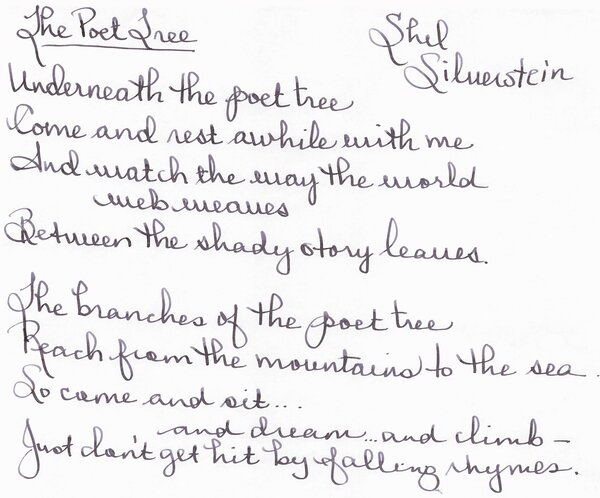 The Poet Tree
Shel
Silverstein
Underneath the poet tree
Come and rest awhile with me
And watch the way the world
web weaves
Between the shady story leaves.
The branches of the poet tree
Reach from the mountains to the sea
So come and sit...
and dream...and climb—
Just don't get hit by falling rhymes.